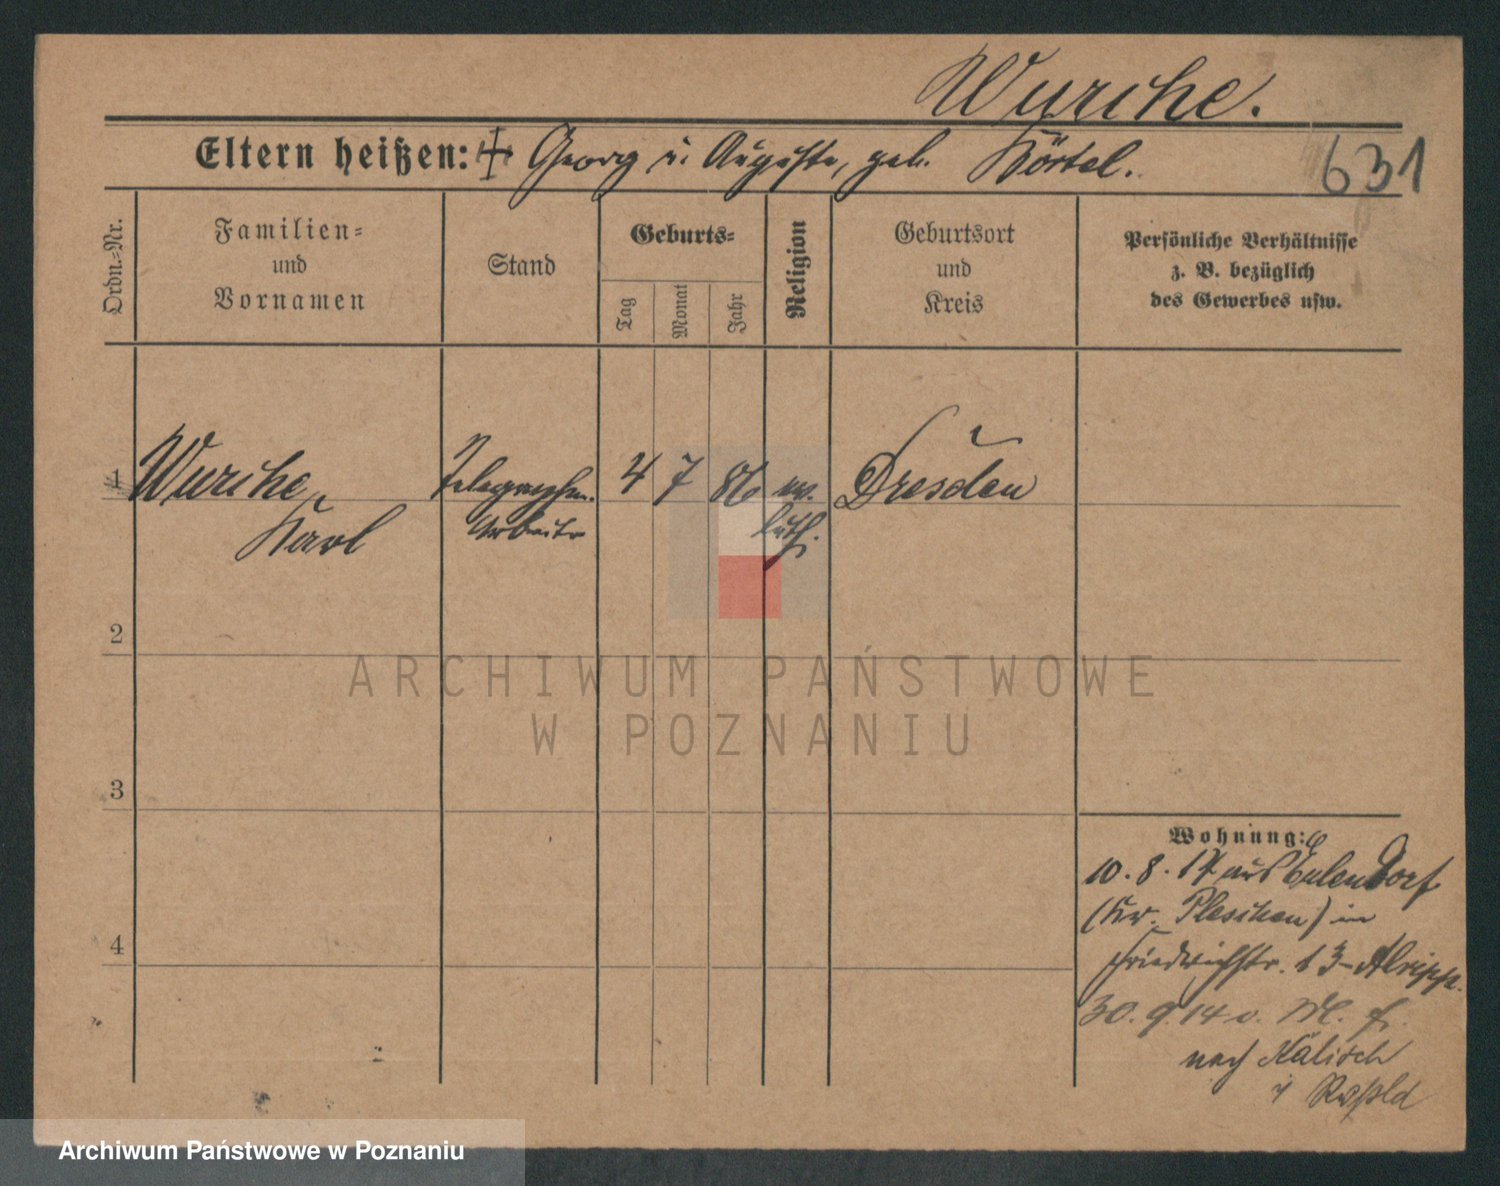 Wurche.
Eltern heißen: Georg u. Auguste, geb. Körtel.
631
Ordn.-Nr.
Familien=
und
Vornamen
Stand
Geburts=
Tag
Monat
Jahr
Religion
Geburtsort
und
Kreis
Persönliche Verhältnisse
z. B. bezüglich
des Gewerbes usw.
1 Wurche, Telegraphen. 4 7 86 ev. Dresden
Karl Arbeiter luth.
2
3
4
Wohnung:
10. 8. 17 aus Eulendorf
(Kr. Pleschen) in
Friedrichstr. 13
30. 9. 14 v.
nach Kalisch
i
ARCHIWUM PAŃSTWOWE
W POZNANIU
Archiwum Państwowe w Poznaniu